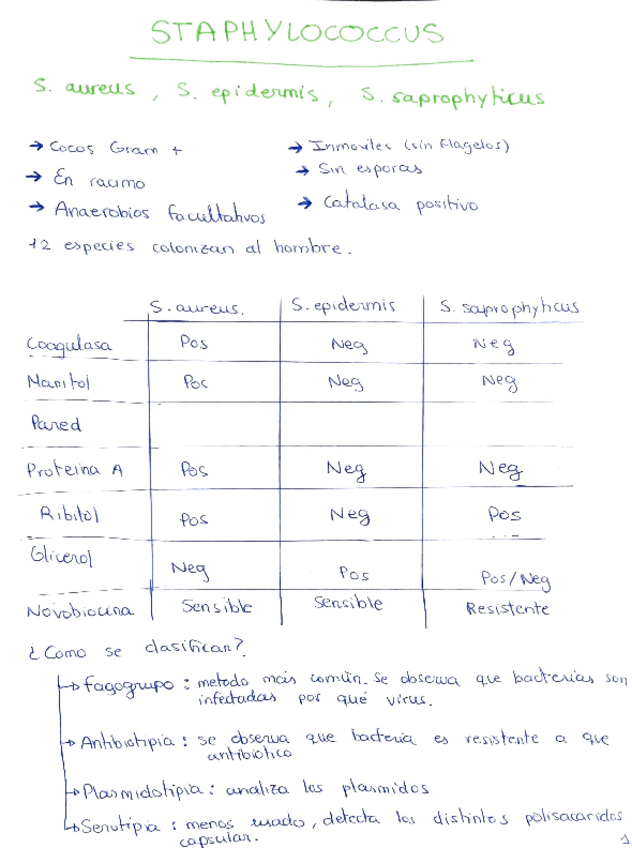 STAPHYLOCOCCUS
S. aureus, S. epidermis, S. saprophyticus
→ Cocos Gram +
→ En racimo
→ Anaerobios facultativos
→ Inmoviles (sin flagelos)
→ Sin esporas
→ Catalasa positivo
12 especies colonizan al hombre.
S. aureus. S. epidermis S. saprophyticus
Coagulasa Pos Neg Neg
Manitol Pos Neg Neg
Pared
Proteina A Pos Neg Neg
Ribitol Pos Neg Pos
Glicerol Neg Pos Pos/Neg
Novobiocina Sensible Sensible Resistente
¿Como se clasifican?
→ Fagogrupo : metodo más común. Se observa que bacterias son
infectadas por qué virus.
→ Antibiotipia : se observa que bacteria es resistente a que
antibiótico
→ Plasmidotipia : analiza los plasmidos
→ Serotipia : menos usado, detecta los distintos polisacaridos
capsular.
1